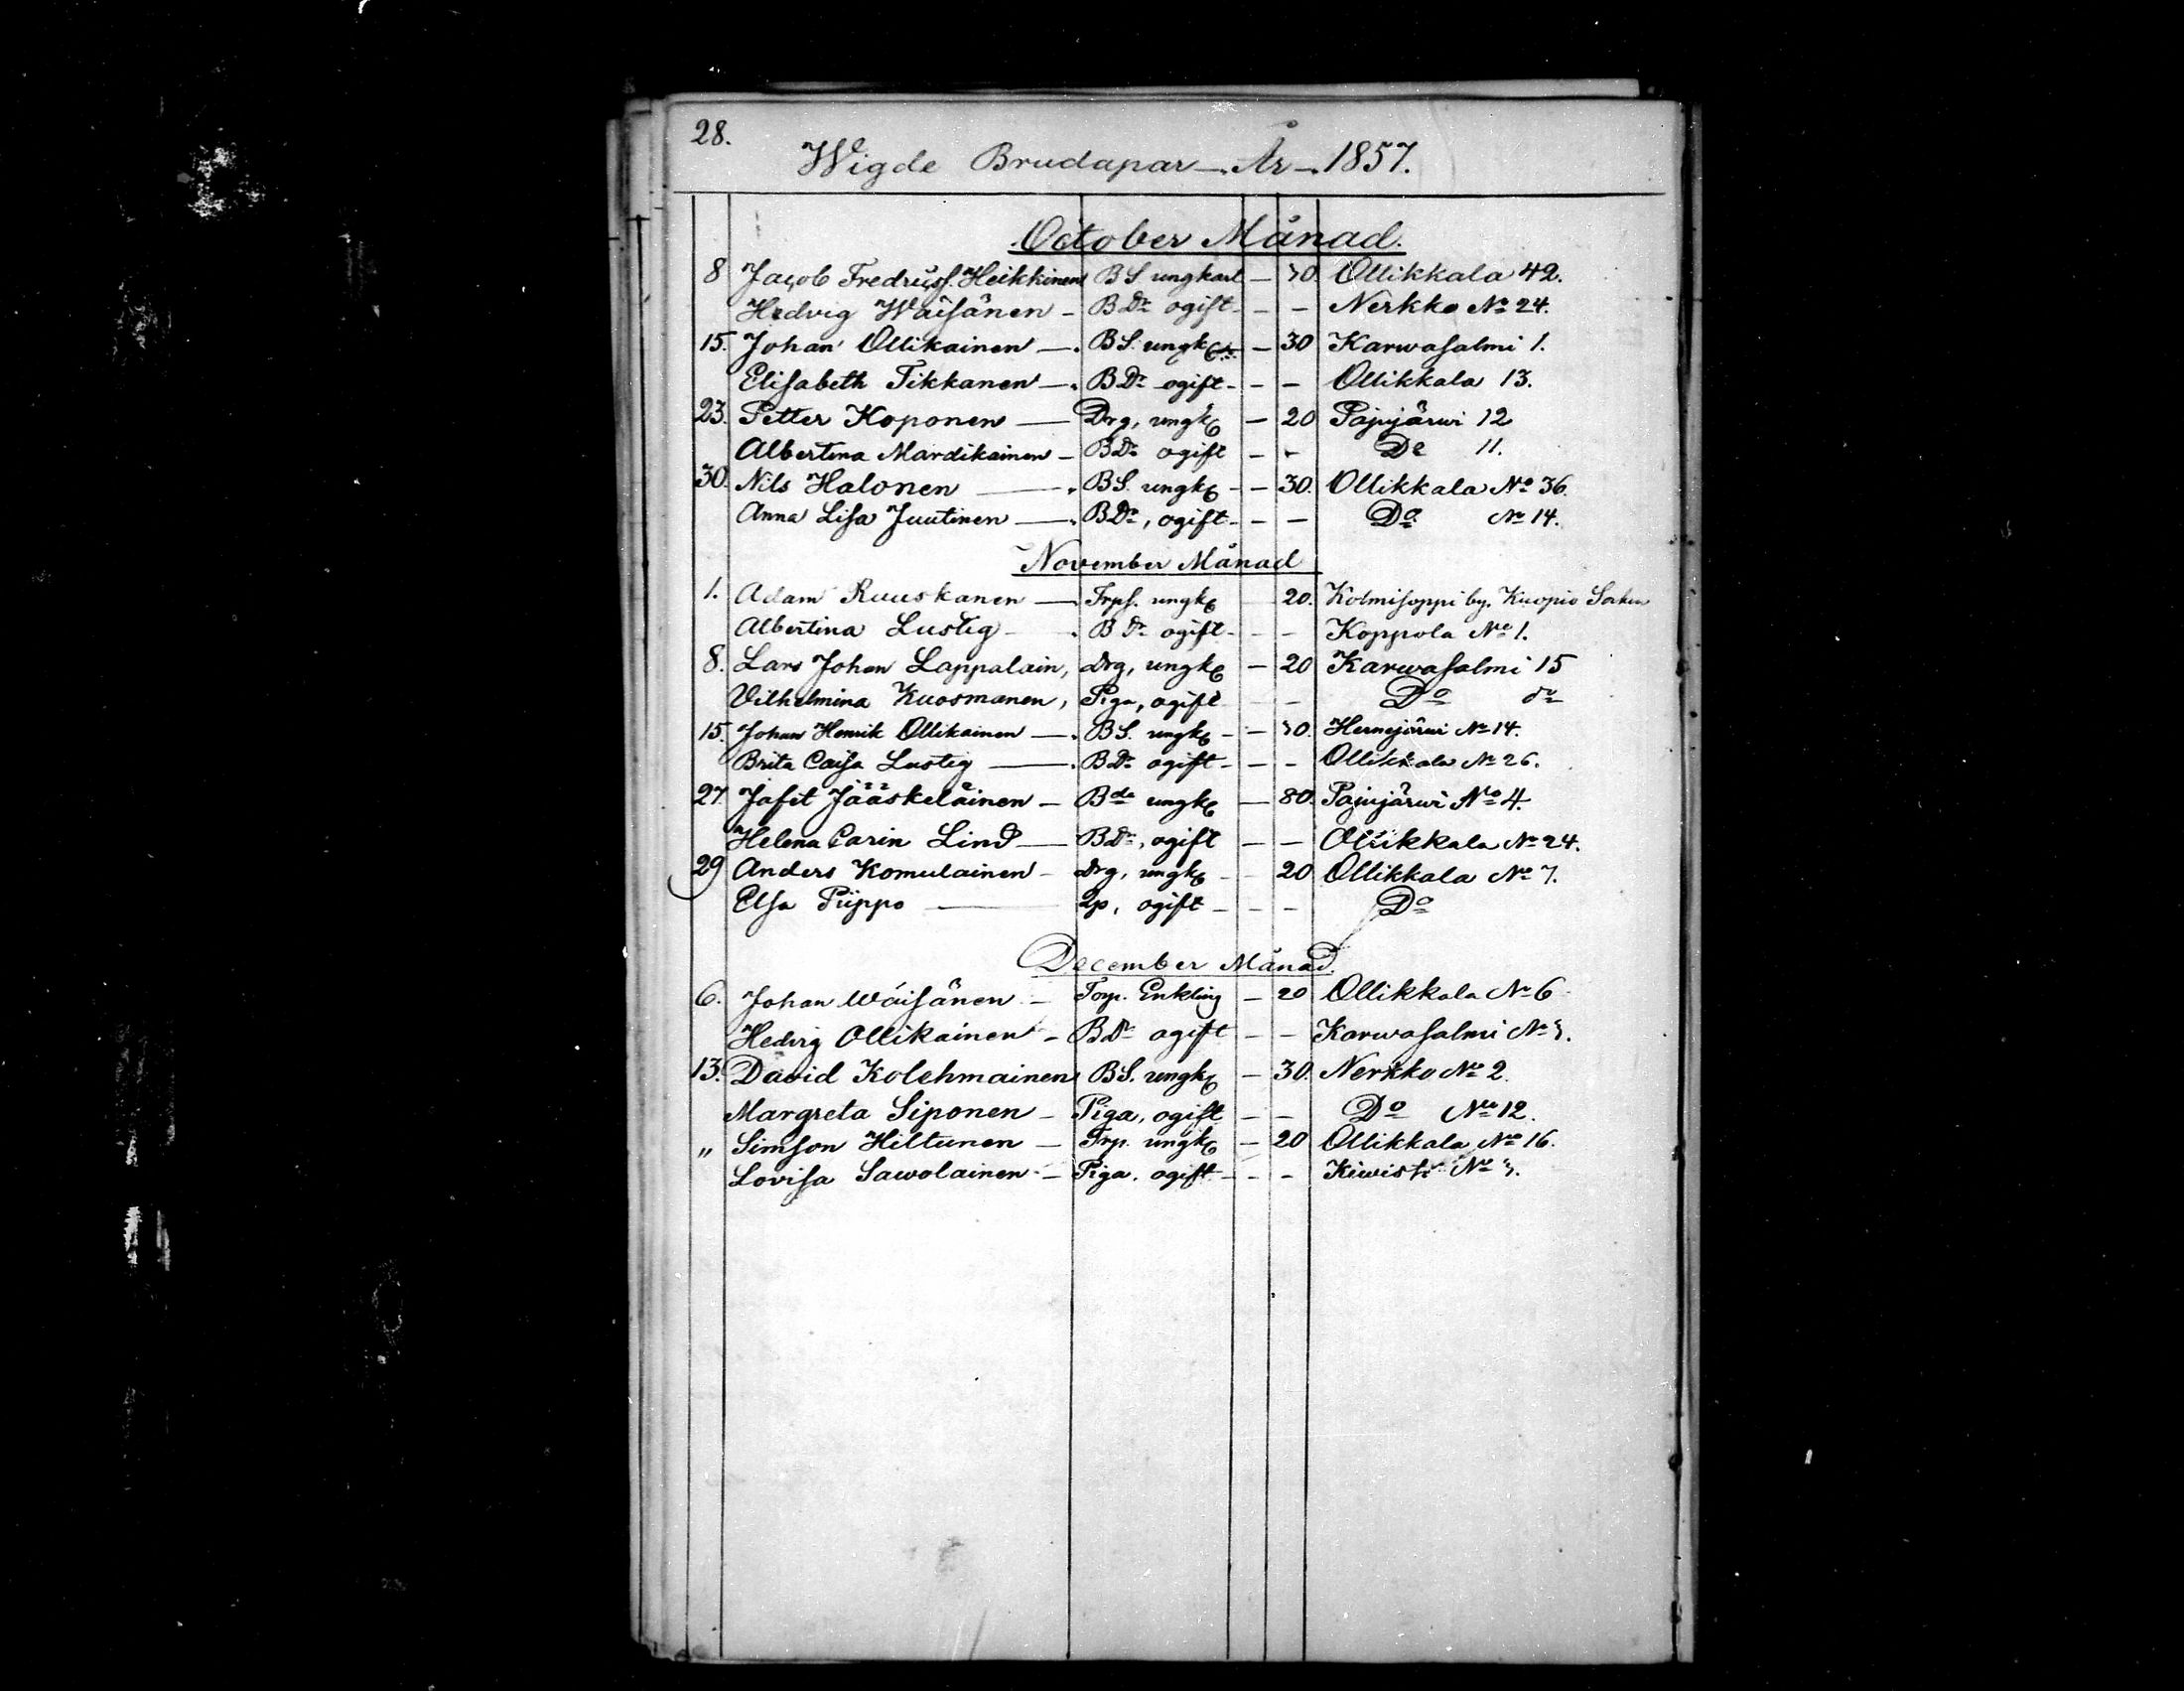 28.
Wigde Brudapar År 1857.
October Månad.
8 Jacob Fredrikss. Heikkinen BS ungkarl — 30 Ollikkala 42.
Hedvig Wäisänen — BDr ogift — — Nerkko No 24.
15. Johan Ollikainen — BS. ungk — 30 Karwasalmi 1.
Elisabeth Tikkanen — BDr ogift — — Ollikkala 13.
23. Petter Koponen — Drg, ungk — 20 Pajujärwi 12
Albertina Mardikainen — BDr ogift — — Do 11.
30. Nils Halonen — BS. ungk — 30. Ollikkala No 36.
Anna Lisa Juutinen — BDr, ogift — — Do No 14.
November Månad
1. Adam Ruuskanen — Trps. ungk 20. Kolmisoppi by. Kuopio Socken
Albertina Lustig — BDr ogift — — Koppola No 1.
8. Lars Johan Lappalain, drg, ungk — 20 Karwasalmi 15
Vilhelmina Kuosmanen, Piga, ogift — Do do
15. Johan Henrik Ollikainen — BS. ungk — 30. Hernejärwi No 14.
Brita Caisa Lustig — BDr ogift — — Ollikkala No 26.
27. Jafet Jääskeläinen — Bde ungk — 80. Pajujärwi No 4.
Helena Carin Lind — BDr, ogift — — Ollikkala No 24.
29 Anders Komulainen — drg, ungk — 20 Ollikkala No 7.
Elsa Piippo — ogift — — Do
December Månad.
6. Johan Wäisänen — Torp. Enkling — 20 Ollikkala No 6
Hedvig Ollikainen — BDr ogift — — Karwasalmi No 3.
13. David Kolehmainen BS. ungk — 30. Nerkko No 2.
Margreta Siponen — Piga, ogift — — Do No 12.
" Simson Hiltunen — Trp. ungk — 20 Ollikkala No 16.
Lovisa Sawolainen — Piga. ogift — — Kiwistö No 3.